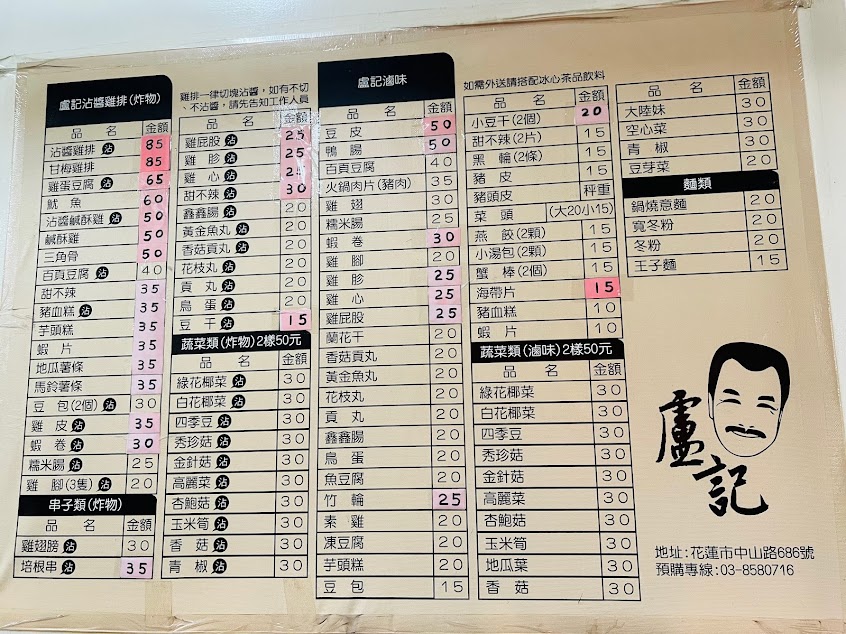 盧記沾醬雞排(炸物)
品名 金額
沾醬雞排 沾 85
甘梅雞排 85
雞蛋豆腐 沾 65
魷魚 60
沾醬鹹酥雞 沾 50
鹹酥雞 50
三角骨 50
百頁豆腐 沾 40
甜不辣 35
豬血糕 沾 35
芋頭糕 35
蝦片 35
地瓜薯條 35
馬鈴薯條 35
豆包(2個) 沾 30
雞皮 沾 35
蝦卷 沾 30
糯米腸 沾 25
雞腳(3隻) 沾 20
串子類(炸物)
品名 金額
雞翅膀 沾 30
培根串 沾 35
雞排一律切塊沾醬，如有不切
、不沾醬，請先告知工作人員
品名 金額
雞屁股 沾 25
雞胗 沾 25
雞心 沾 25
甜不辣 沾 30
鑫鑫腸 沾 20
黃金魚丸 沾 20
香菇貢丸 沾 20
花枝丸 沾 20
貢丸 沾 20
鳥蛋 沾 20
豆干 沾 15
蔬菜類(炸物)2樣50元
品名 金額
綠花椰菜 沾 30
白花椰菜 沾 30
四季豆 沾 30
秀珍菇 沾 30
金針菇 沾 30
高麗菜 沾 30
杏鮑菇 沾 30
玉米筍 沾 30
香菇 沾 30
青椒 沾 30
盧記滷味
品名 金額
豆皮 50
鴨腸 50
百頁豆腐 40
火鍋肉片(豬肉) 35
雞翅 30
糯米腸 25
蝦卷 30
雞腳 20
雞胗 25
雞心 25
雞屁股 25
蘭花干 20
香菇貢丸 20
黃金魚丸 20
花枝丸 20
貢丸 20
鑫鑫腸 20
鳥蛋 20
魚豆腐 20
竹輪 25
素雞 20
凍豆腐 20
芋頭糕 20
豆包 15
如需外送請搭配冰心茶品飲料
品名 金額
小豆干(2個) 20
甜不辣(2片) 15
黑輪(2條) 15
豬皮 15
豬頭皮 秤重
菜頭 (大20小15)
燕餃(2顆) 15
小湯包(2顆) 15
蟹棒(2個) 15
海帶片 15
豬血糕 10
蝦片 10
蔬菜類(滷味)2樣50元
品名 金額
綠花椰菜 30
白花椰菜 30
四季豆 30
秀珍菇 30
金針菇 30
高麗菜 30
杏鮑菇 30
玉米筍 30
地瓜葉 30
香菇 30
品名 金額
大陸妹 30
空心菜 30
青椒 30
豆芽菜 20
麵類
鍋燒意麵 20
寬冬粉 20
冬粉 20
王子麵 15
盧記
地址:花蓮市中山路686號
預購專線:03-8580716